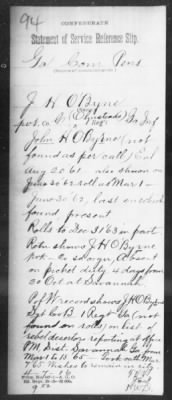 94
CONFEDERATE
Statement of Service Reference Slip.
Ga Com Pens
J H O'Byrne
pvt. Co. (Olmsteads) Ga Inf
John H O'Byrne (not
found as per call) Enl
Aug 20 61 also shown on
June 30 62 roll as Mar 1 -
June 30 62, last on which
found, present
Rolls to Dec 31/63 in part
Rolr shows J H O'Byrne
pvt - 20 days. Absent
on picket duty 15 days from
20 Oct at Savannah
Pof W record shows J H O'Byrne
Sgt Co B 1 Regt Va (not
found on rolls) on list of
rebel deserters reporting at office
P.M. Dist. Savannah Ga from
Mar 1 to 15 65 - Took oath Mar
7 65 Wishes to remain in city